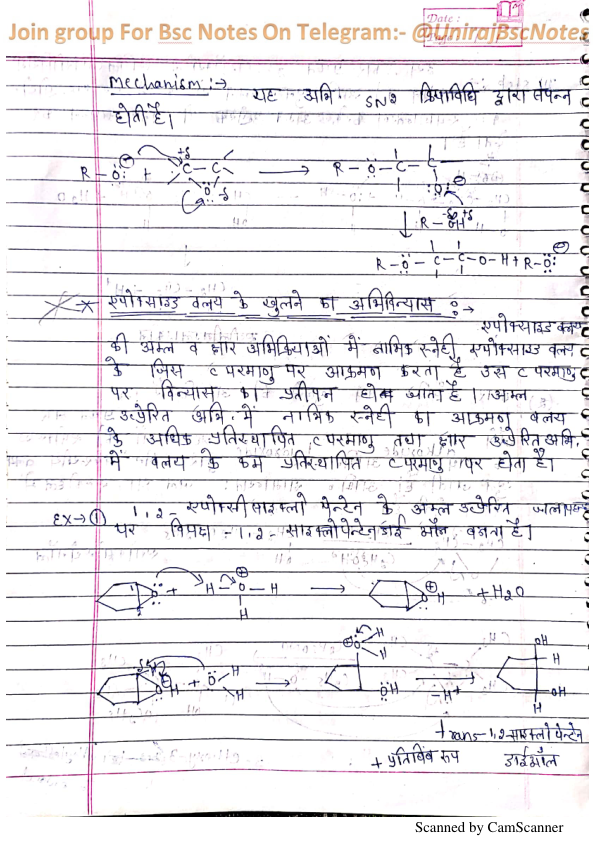 Join group For Bsc Notes On Telegram:- @UnirajBscNotes
Date :
Mechanism :→ यह अभि SN2 क्रियाविधि द्वारा संपन्न
होती है।
R-O: + C-C → R-O-C-C
R-OH
R-O-C-C-O-H + R-O:
एपोक्साइड वलय के खुलने का अभिविन्यास :→
एपोक्साइड वलय
की अम्ल व क्षार अभिक्रियाओं में नाभिक स्नेही, एपोक्साइड वलय
के जिस C परमाणु पर आक्रमण करता है उस C परमाणु
पर विन्यास का प्रतीपन हो जाता है। अम्ल
उत्प्रेरित अभि. में नाभिक स्नेही का आक्रमण वलय
के अधिक प्रतिस्थापित C परमाणु तथा क्षार उत्प्रेरित अभि.
में वलय के कम प्रतिस्थापित C परमाणु पर होता है।
EX→ ① 1,2-एपोक्सी साइक्लो पेन्टेन के अम्ल उत्प्रेरित
पर विपक्ष -1,2- साइक्लोपेन्टेन डाई ऑल बनता है।
O + H-O-H → O H + H2O
H
O H + O H H → O H H OH -H+ → OH H OH H
trans-1,2-साइक्लो पेन्टेन
+ प्रतिबिंब रूप डाईऑल
Scanned by CamScanner